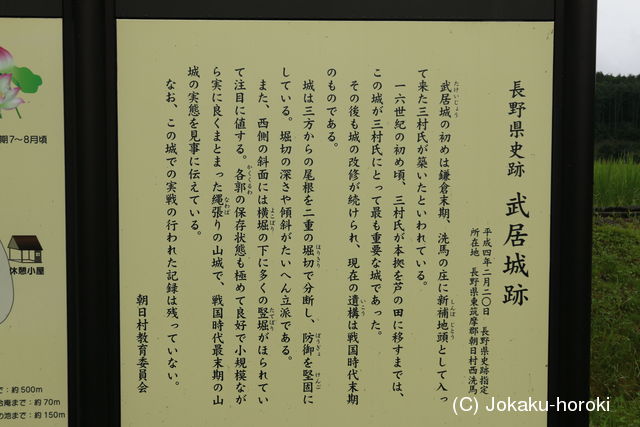 長野県史跡 武居城跡
平成四年二月二〇日 長野県史跡指定
所在地 長野県東筑摩郡朝日村西洗馬
武居城の初めは鎌倉末期、洗馬の庄に新補地頭として入っ
たけいじょう
しんぽ じとう
て来た三村氏が築いたといわれている。
一六世紀の初め頃、三村氏が本拠を芦の田に移すまでは、
この城が三村氏にとって最も重要な城であった。
その後も城の改修が続けられ、現在の遺構は戦国時代末期
いこう
のものである。
城は三方からの尾根を二重の堀切で分断し、防御を堅固に
ほりきり
ぼうぎょ
けんご
している。堀切の深さや傾斜がたいへん立派である。
また、西側の斜面には横堀の下に多くの竪堀がほられてい
よこぼり
たてぼり
て注目に値する。各郭の保存状態も極めて良好で小規模なが
かくくるわ
ら実に良くまとまった縄張りの山城で、戦国時代最末期の山
なわば
城の実態を見事に伝えている。
なお、この城での実戦の行われた記録は残っていない。
朝日村教育委員会
期7〜8月頃
休憩小屋
で：約500m
合庵まで：約70m
の池まで：約150m
(C) Jokaku-horoki